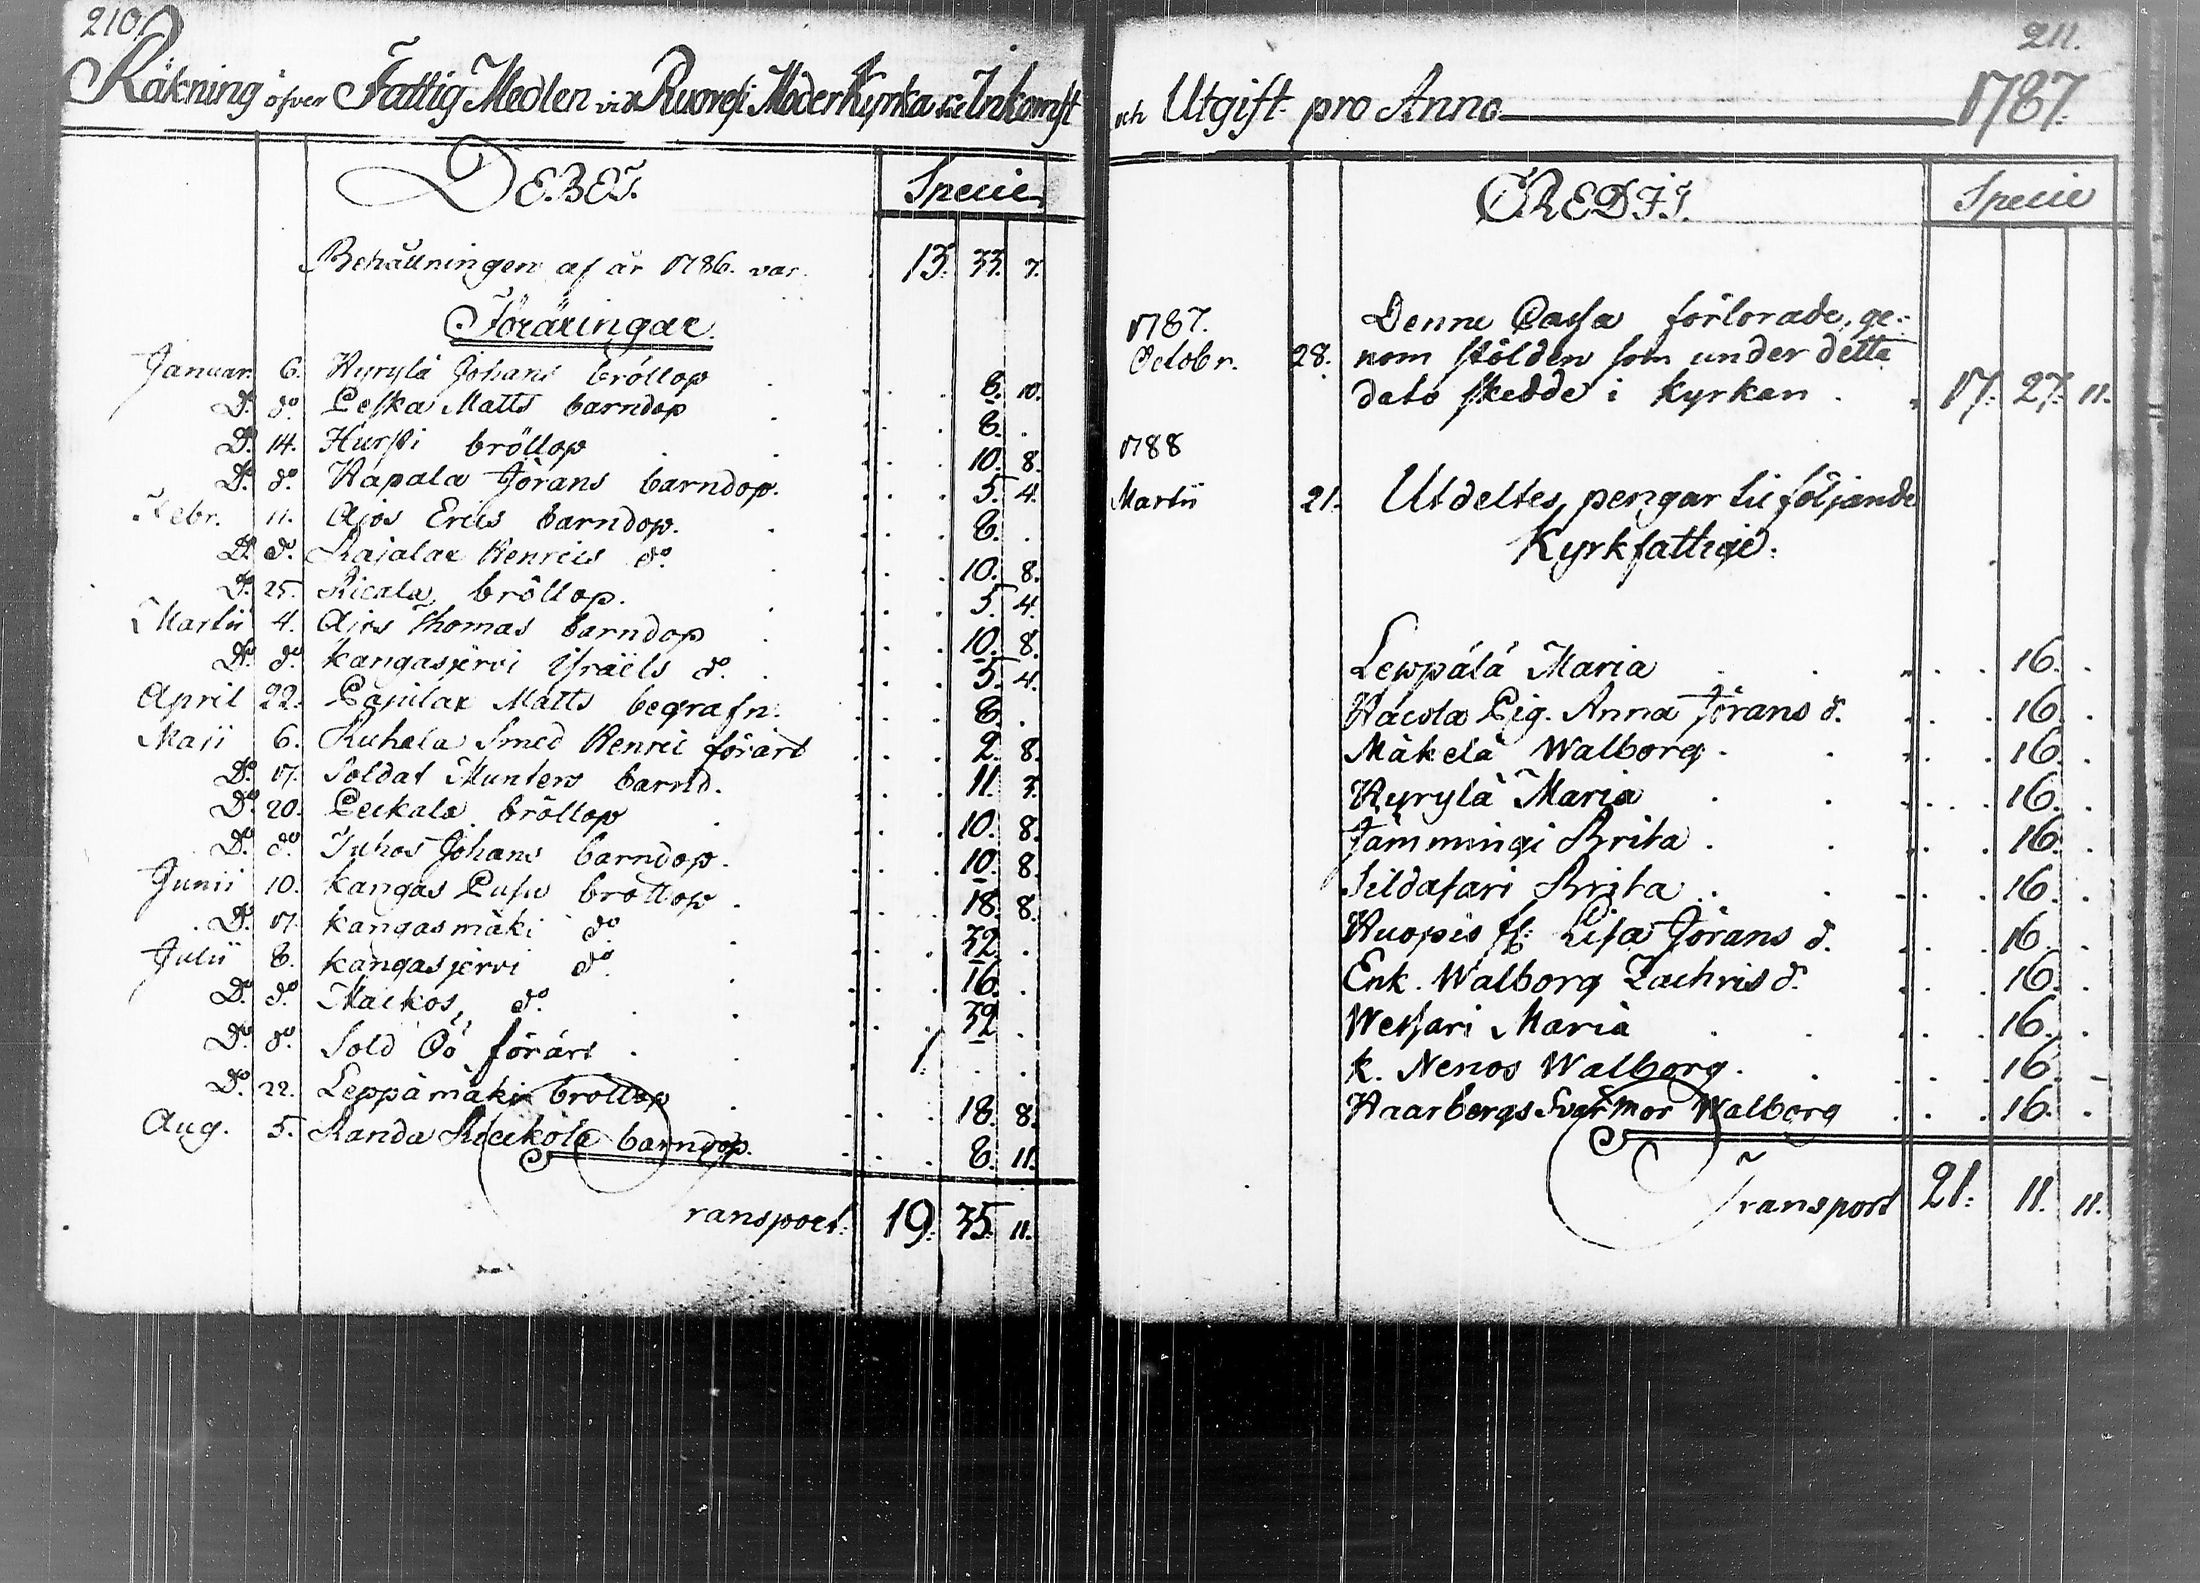 210.
Räkning öfver Fattig Medlen vid Ruovesi Moder Kyrka til Inkomst
DEBET. Specie
Behållningen af år 1786. var. 13. 33. 7.
Föräringar.
Januar. 6. Hyrylä Johans bröllop . . . 8. 10.
Do. do. Peska Matts barndop . . . 8. .
Do. 14. Hursti bröllop . . . 10. 8.
Do. do. Hapala Jörans barndop. . . . 5. 4.
Febr. 11. Ajos Erics barndop. . . . 8. .
Do. do. Rajalax Henrics do. . . . 10. 8.
Do. 25. bröllop. . . . 5. 4.
Martii 4. Ajos Thomas barndop . . . 10. 8.
Do. do. Kangasjervi Israëls do. . . . 5. 4.
April 22. Papilax Matts begrafn. . . . 8. .
Maji 6. Ruhala Smed Henric förärt . . . 2. 8.
Do. 17. Soldat Munters barnd. . . . 11. 3.
Do. 20. Peckala bröllop . . . 10. 8.
Do. do. Juhos Johans barndop. . . . 10. 8.
Junii 10. Kangas Pusu bröllop . . . 18. 8.
Do. 17. Kangasmäki do . . . 32. .
Julii 8. Kangasjervi do. . . . 16. .
Do. do. Maikos, do. . . . 32. .
Do. do. Sold Öö förärt . 1. . .
Do. 22. Leppämäki bröllop . . . 18. 8.
Aug. 5. Randa barndop. . . . 8. 11.
ransport. 19. 35. 11.
211.
och Utgift pro Anno 1787.
CREDIT. Specie
1787. Denne Cassa förlorade, ge-
Octobr. 28. nom stölden som under detta
dato skedde i Kyrkan . . 17. 27. 11.
1788
Martii 21. Utdeltes, pengar til följande
Kyrkfattige.
Leppälä Maria . . . 16. .
Pig. Anna Jörans d. . . . 16. .
Mäkelä Walborg . . . 16. .
Hyrylä Maria . . . 16. .
Jämmingi Brita . . . 16. .
Sildasari Brita . . . 16. .
Huopio Lisa Jörans d. . . . 16. .
Enk. Walborg Zachris d. . . . 16. .
Wessari Maria . . . 16. .
K. Nenos Walborg . . . 16. .
Haarbergs Svärmor Walborg . . . 16. .
Transport 21. 11. 11.